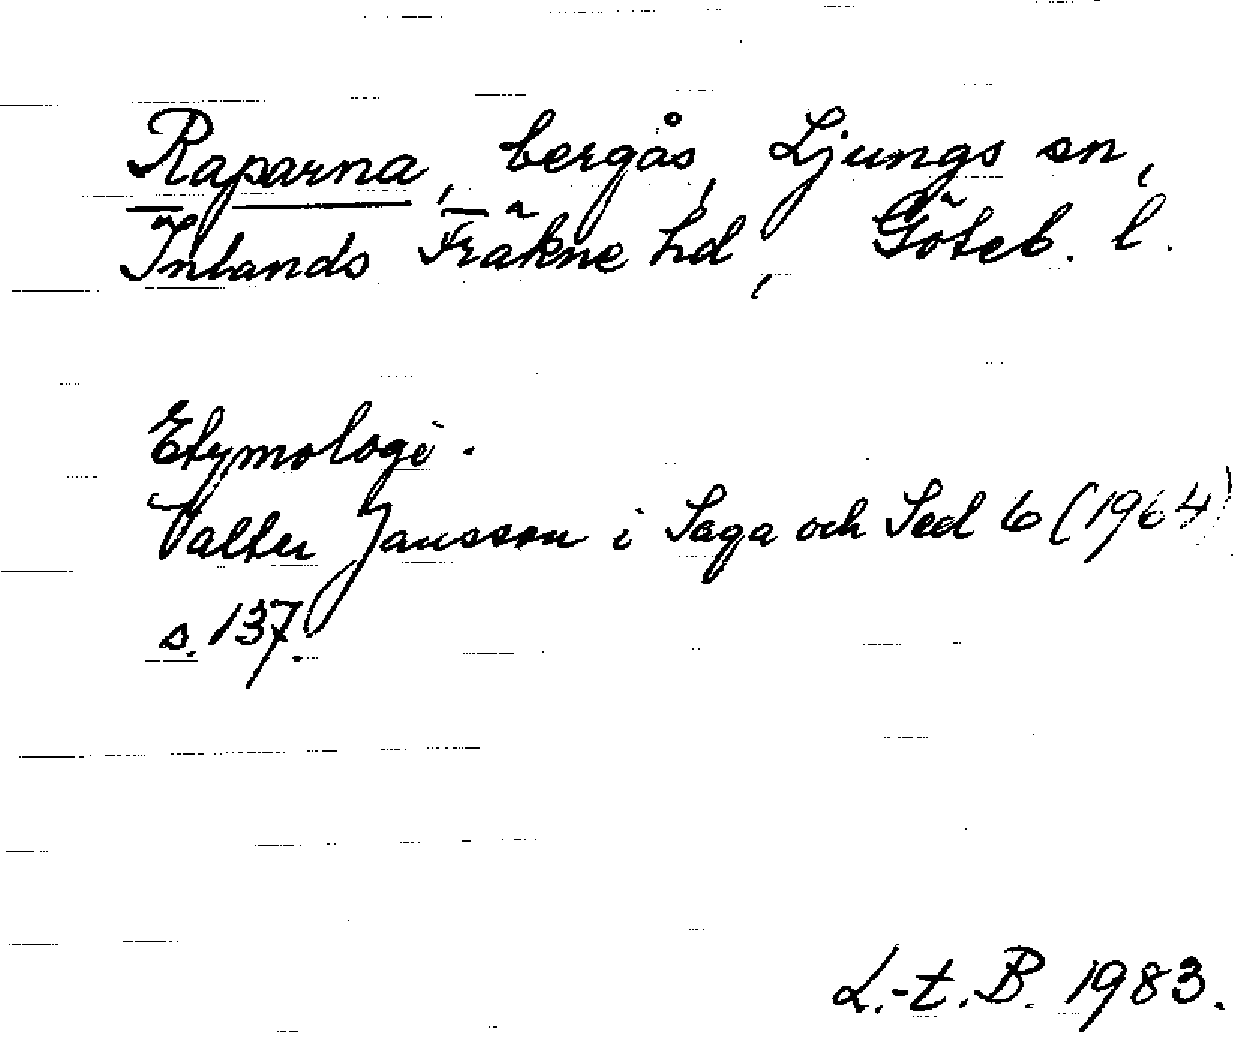 Raparna, bergås, Ljungs sn,
Inlands Fräkne hd, Göteb. l.
Etymologi.
Valter Jansson i Saga och Sed 6 (1964)
s. 137.
L.-t. B. 1983.